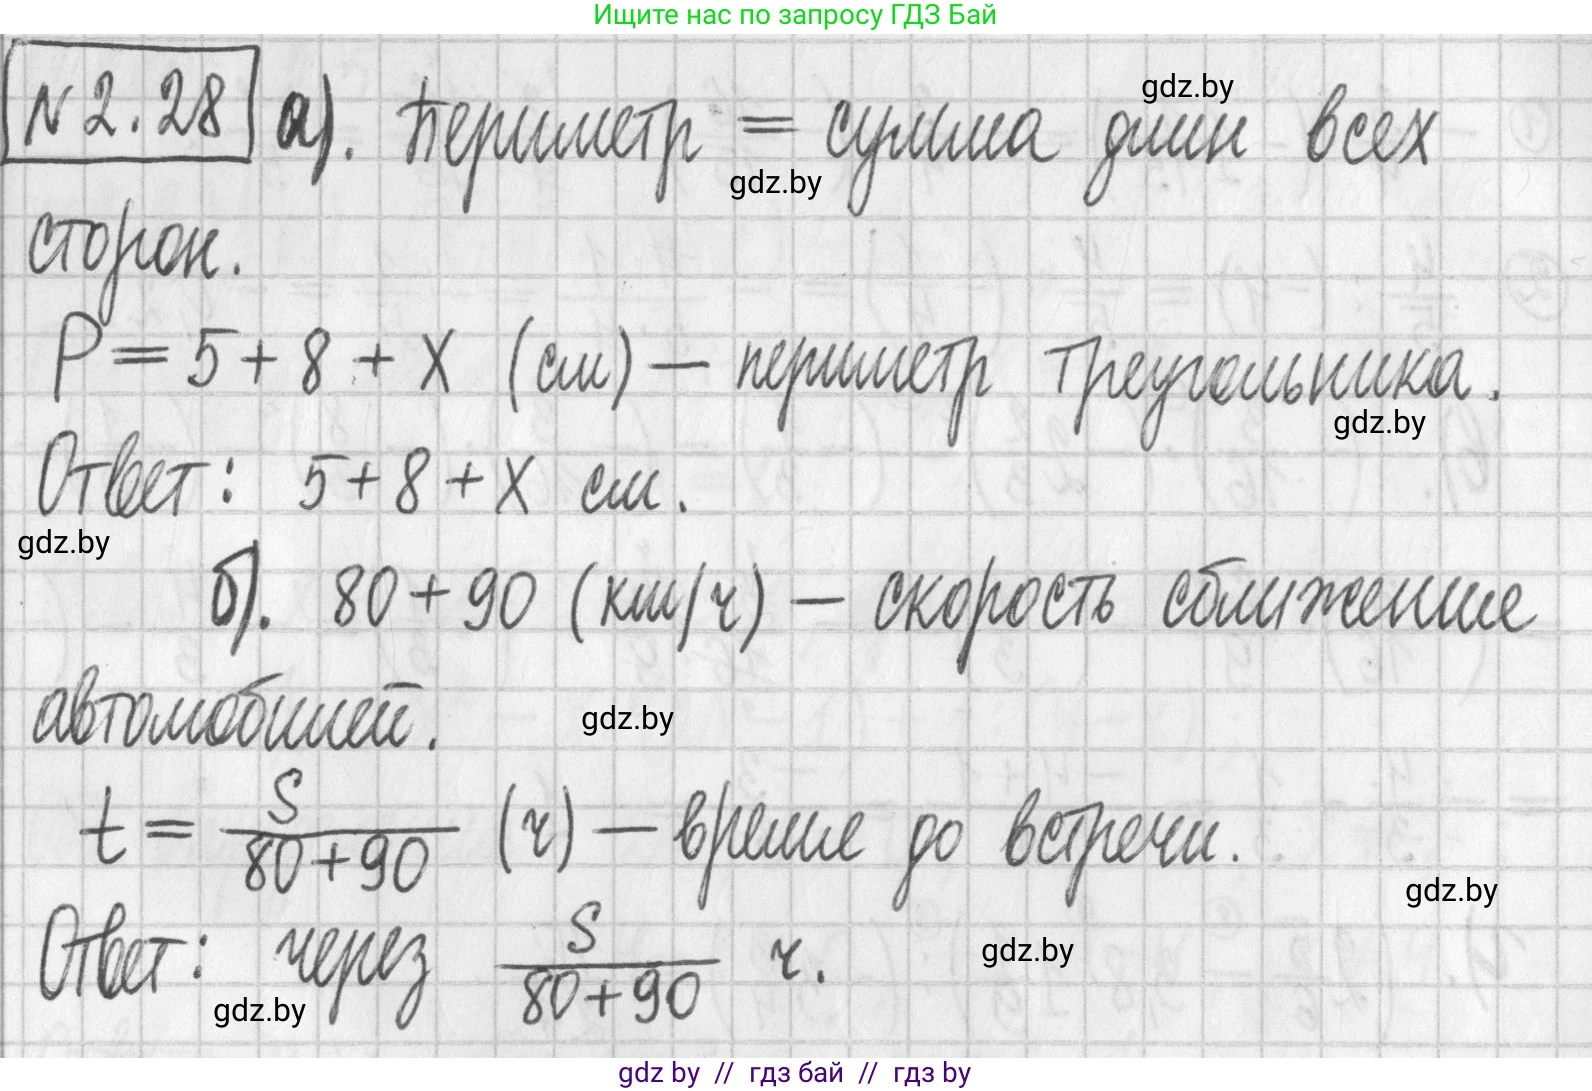 Ищите нас по запросу ГДЗ Бай
№ 2.28 а). Периметр = сумма длин всех
gdz.by
gdz.by
сторон.
P = 5 + 8 + x (см) — периметр треугольника.
gdz.by
Ответ: 5 + 8 + x см.
gdz.by
б). 80 + 90 (км/ч) — скорость сближение
автомобилей.
gdz.by
t = S / 80 + 90 (ч) — время до встречи.
gdz.by
Ответ: через S / 80 + 90 ч.
gdz.by
gdz.by
gdz by // гдз бай // гдз by